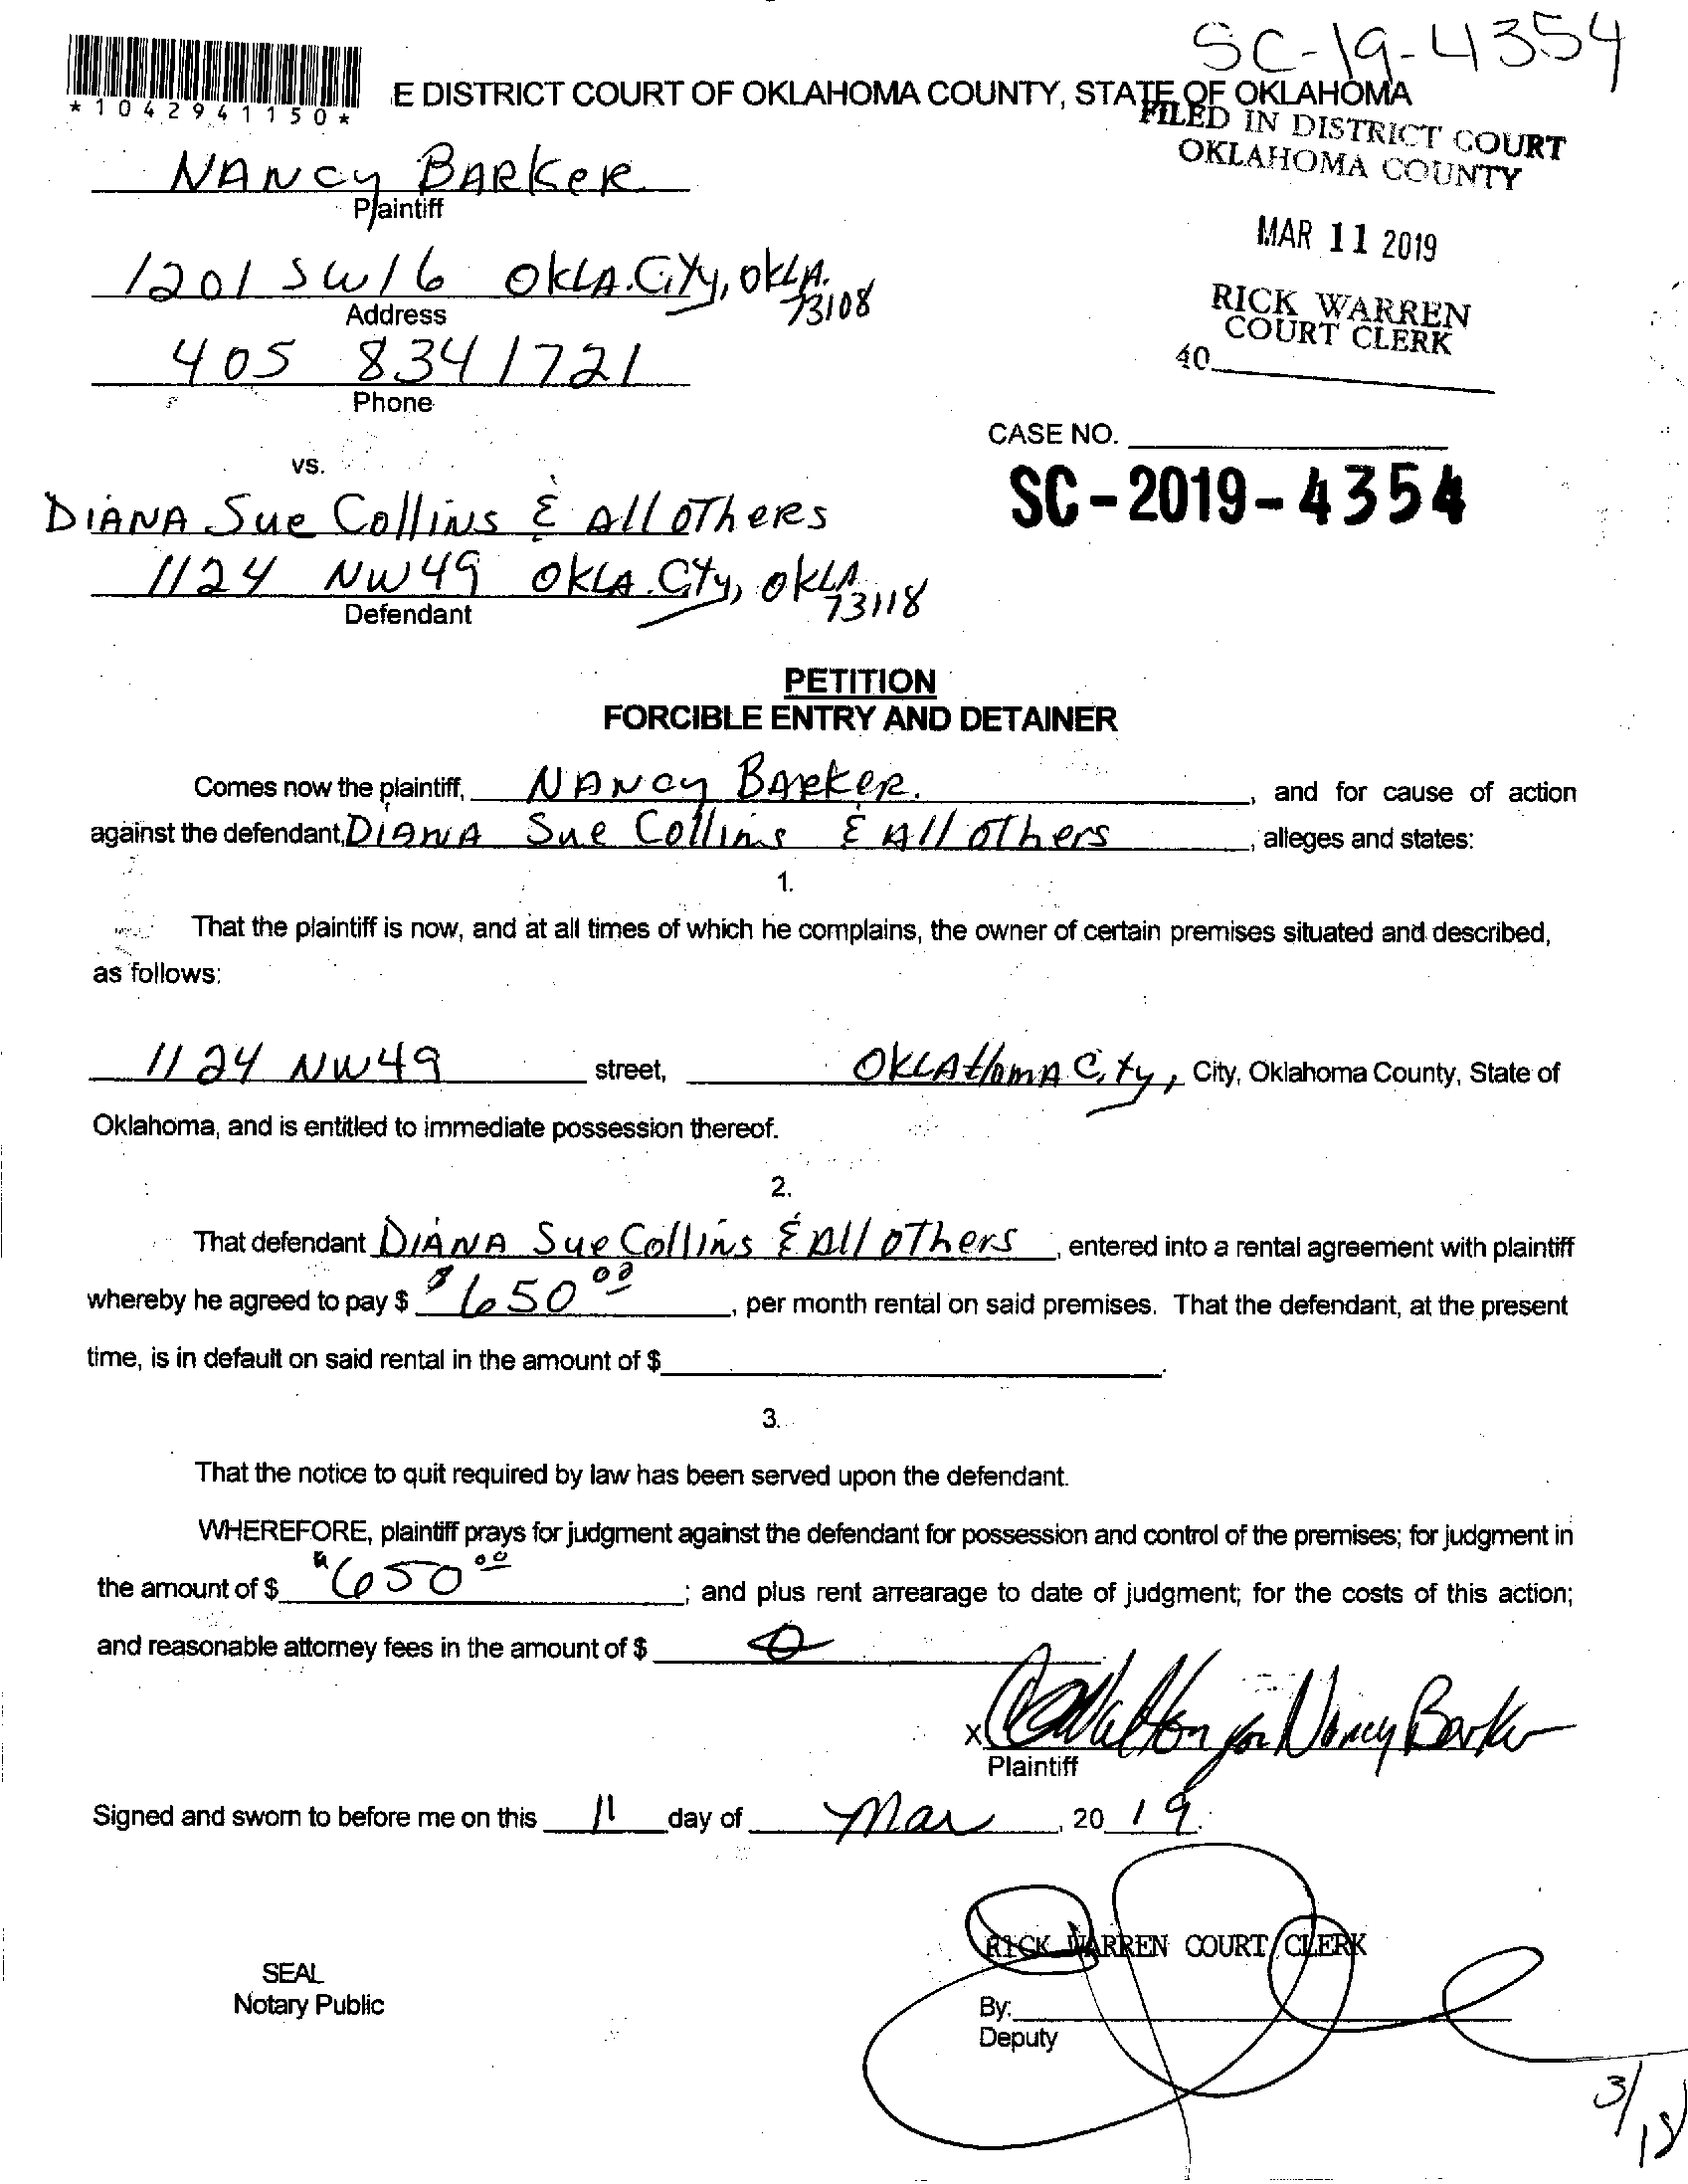 SC-19-4354
*1042941150*
E DISTRICT COURT OF OKLAHOMA COUNTY, STATE OF OKLAHOMA
FILED IN DISTRICT COURT
OKLAHOMA COUNTY
NANCY BARKER
Plaintiff
MAR 11 2019
1201 SW 16 OKLA. CITY, OKLA. 73108
Address
RICK WARREN
COURT CLERK
40
405 834 1721
Phone
CASE NO.
vs.
SC-2019-4354
DIANA Sue Collins & All OTheRs
1124 NW 49 OKLA. CiTy, OKLA 73118
Defendant
PETITION
FORCIBLE ENTRY AND DETAINER
Comes now the plaintiff, NANCY BARKER. , and for cause of action
against the defendant, DIANA Sue Collins & All OThers , alleges and states:
1.
That the plaintiff is now, and at all times of which he complains, the owner of certain premises situated and described,
as follows:
1124 NW 49 street, OKLAHOMA City, City, Oklahoma County, State of
Oklahoma, and is entitled to immediate possession thereof.
2.
That defendant DIANA Sue Collins & All OThers , entered into a rental agreement with plaintiff
whereby he agreed to pay $ $650.00 , per month rental on said premises. That the defendant, at the present
time, is in default on said rental in the amount of $ .
3.
That the notice to quit required by law has been served upon the defendant.
WHEREFORE, plaintiff prays for judgment against the defendant for possession and control of the premises; for judgment in
the amount of $ $650.00 ; and plus rent arrearage to date of judgment; for the costs of this action;
and reasonable attorney fees in the amount of $ 0
X Walton for Nancy Barker
Plaintiff
Signed and sworn to before me on this 11 day of Mar , 20 19.
RICK WARREN COURT CLERK
SEAL
Notary Public
By:
Deputy
3/18